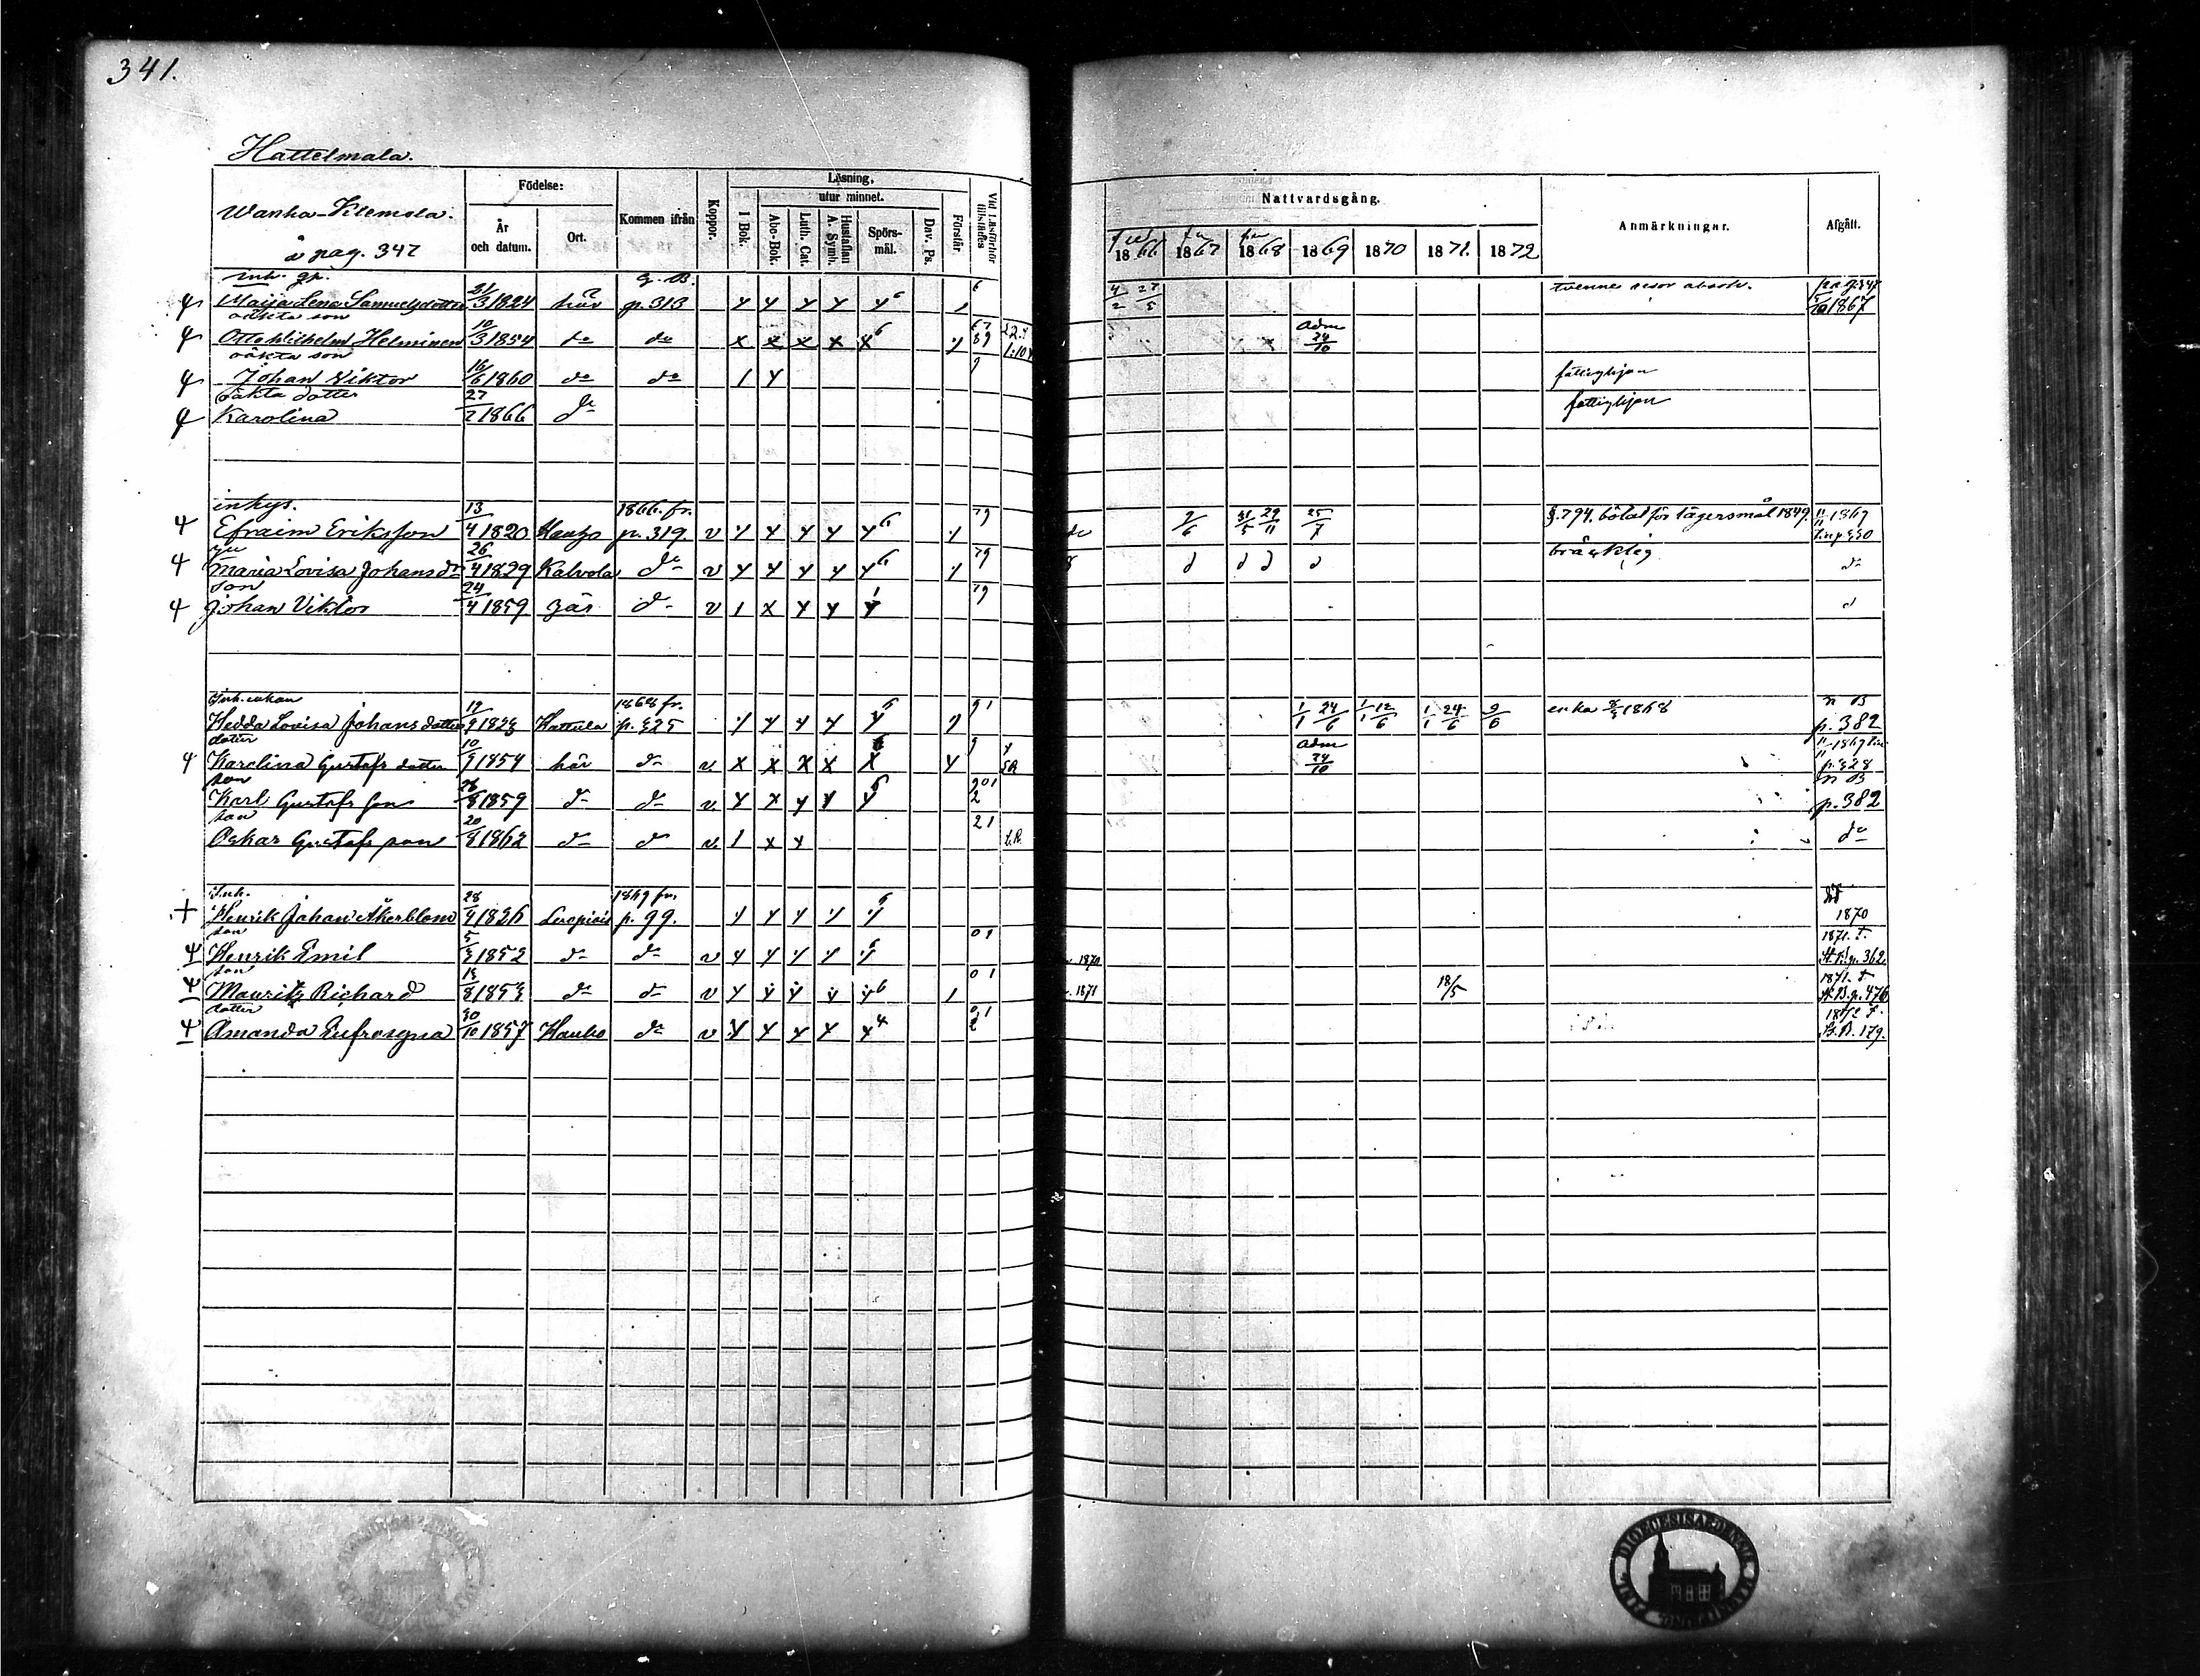 341.
Hattelmala.
Wanha-Klemola.
å pag. 347
Födelse:
År och datum.
Ort.
Kommen ifrån
Koppor.
Läsning,
utur minnet.
I Bok.
Abc-Bok.
Luth. Cat.
Hustaflan A. Symb.
Spörsmål.
Dav. Ps.
Förstår.
Vid Läsförhör tillstädes
Nattvardsgång.
1866 1867 1868 1869 1870 1871. 1872
Anmärkningar.
Afgått.
inh. gp. G. B.
Maija Lena Samuelsdotter 21/3 1824 här p. 313 y y y y y6 4/2 27/5 tvenne resor absolv. 1867
oäkta son
Otto Wilhelm Helminen 10/3 1854 do do x x x x x6 adm 24/10
oäkta son
Johan Viktor 16/6 1860 do do 1 y fattighjon
oäkta dotter
Karolina 27/2 1866 do fattighjon
inhys. 1866. fr.
Efraim Eriksson 13/4 1820 Hauho p. 319. v y y y y y6 79 2/6 31/5 29/11 25/7 §. 794. bötat för lägersmål 1849. 11/11 1869
Maria Lovisa Johansdr 26/4 1829 Kalvola do v y y y y y6 79 bräcklig do
son
Johan Viktor 24/4 1859 här do v 1 x y y y 79 d
Inh. enkan 1868 fr.
Hedda Lovisa Johansdotter 19/9 1823 Hattula p. 325 y y y y y 91 1/1 24/6 1/1 12/6 1/1 24/6 9/6 enka 1868 n B p. 382
dotter
Karolina Gustafs dotter 10/9 1854 här do v x x x x x y adm 24/10 11/11 1869 p. 328
son
Karl Gustafs son 28/8 1859 do do v y x y y y n B p. 382
son
Oskar Gustafs son 20/8 1862 do do v 1 x x 21 do
Inh. 1869 fr.
Henrik Johan Åkerblom 28/4 1826 Loopis p. 99. y y y y y död 1870
son
Henrik Emil 5/3 1852 do do v y y y y y 01 1870 1871. F. p. 362.
son
Mauritz Richard 18/8 1853 do do v y y y y y6 01 1871 18/5 1871. F. B. p. 476
dotter
Amanda Eufrosyna 30/10 1857 Hauho do v y y y y x4 B. 179.
DIOECESIS ABOENSIS